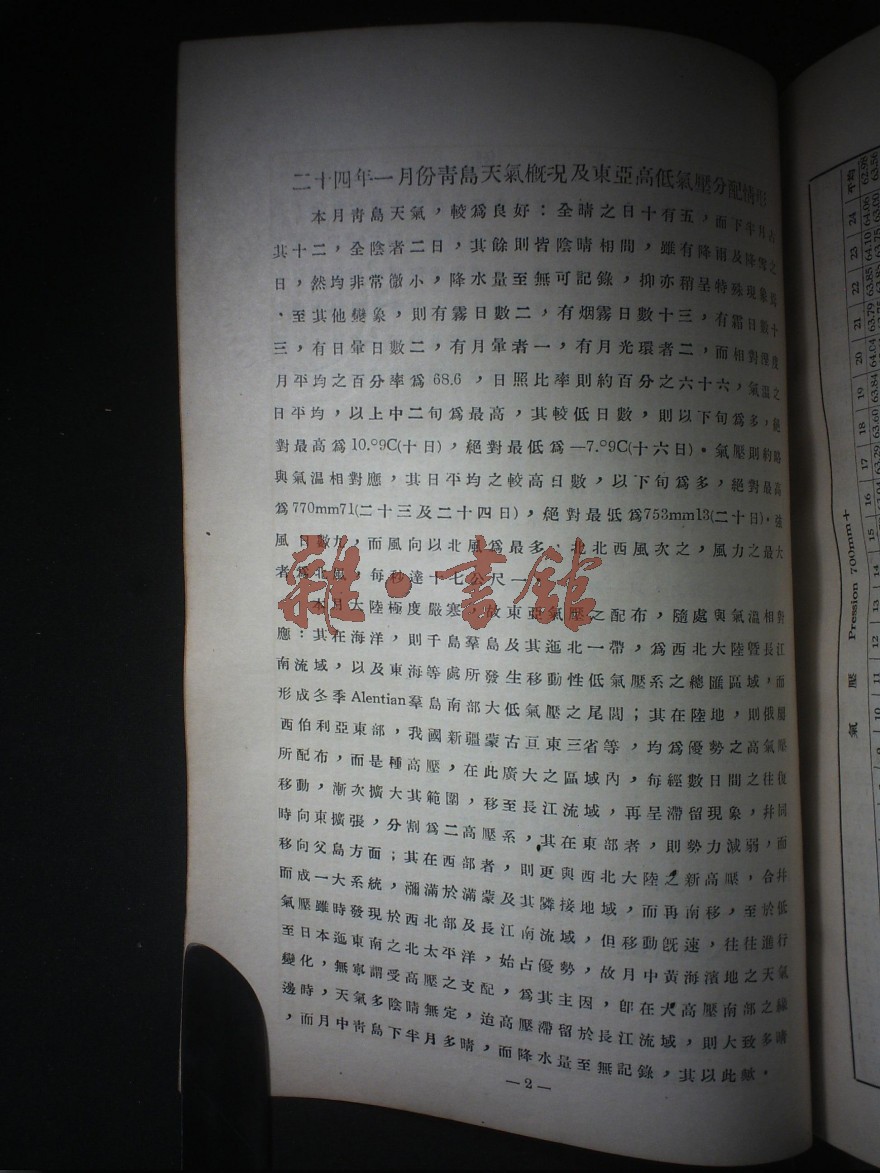 二十四年一月份靑島天氣槪況及東亞高低氣壓分配情形
本月靑島天氣，較爲良好：全晴之日十有五，而下半月占
其十二，全陰者二日，其餘則皆陰晴相間，雖有降雨及降雪之
日，然均非常微小，降水量至無可記錄，抑亦稍呈特殊現象焉
、至其他變象，則有霧日數二，有烟霧日數十三，有霜日數十
三，有日暈日數二，有月暈者一，有月光環者二，而相對溼度
月平均之百分率爲68.6，日照比率則約百分之六十六，氣溫之
日平均，以上中二旬爲最高，其較低日數，則以下旬爲多，絕
對最高爲10.°9C(十日)，絕對最低爲—7.°9C(十六日)。氣壓則約略
與氣溫相對應，其日平均之較高日數，以下旬爲多，絕對最高
爲770mm71(二十三及二十四日)，絕對最低爲753mm13(二十日)。強
風日數九，而風向以北風爲最多，北北西風次之，風力之最大
者爲北風，每秒達十七公尺一。
本月大陸極度嚴寒，故東亞氣壓之配布，隨處與氣溫相對
應：其在海洋，則千島羣島及其迤北一帶，爲西北大陸暨長江
南流域，以及東海等處所發生移動性低氣壓系之總匯區域，而
形成冬季Alentian羣島南部大低氣壓之尾閭；其在陸地，則俄屬
西伯利亞東部，我國新疆蒙古亘東三省等，均爲優勢之高氣壓
所配布，而是種高壓，在此廣大之區域內，每經數日間之往復
移動，漸次擴大其範圍，移至長江流域，再呈滯留現象，幷同
時向東擴張，分割爲二高壓系，其在東部者，則勢力減弱，而
移向父島方面；其在西部者，則更與西北大陸之新高壓，合幷
而成一大系統，瀰滿於滿蒙及其隣接地域，而再南移，至於低
氣壓雖時發現於西北部及長江南流域，但移動旣速，往往進行
至日本迤東南之北太平洋，始占優勢，故月中黃海濱地之天氣
變化，無寧謂受高壓之支配，爲其主因，卽在大高壓南部之緣
邊時，天氣多陰晴無定，迨高壓滯留於長江流域，則大致多晴
，而月中靑島下半月多晴，而降水量至無記錄，其以此歟。
—2—
雜·書館
氣 壓 Pression 700mm+
平均
24
23
22
21
20
19
18
17
16
15
14
13
12
11
10